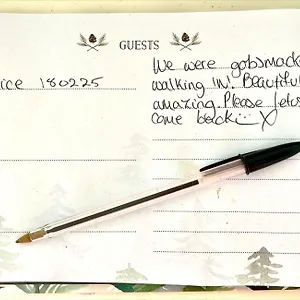 GUESTS
ice 180225
We were gobsmack
walking IN. Beautiful
amazing. Please let us
come back